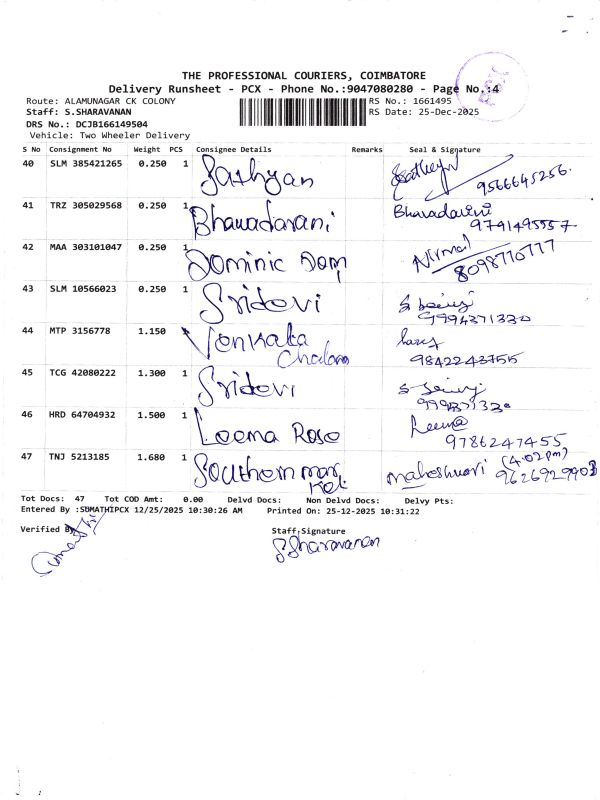 THE PROFESSIONAL COURIERS, COIMBATORE
Delivery Runsheet - PCX - Phone No.:9047080280 - Page No.:4
PCX
Route: ALAMUNAGAR CK COLONY RS No.: 1661495
Staff: S.SHARAVANAN RS Date: 25-Dec-2025
DRS No.: DCJB166149504
Vehicle: Two Wheeler Delivery
S No Consignment No Weight PCS Consignee Details Remarks Seal & Signature
40 SLM 385421265 0.250 1 Sathyan 9566645256.
41 TRZ 305029568 0.250 1 Bhawadarani Bharadarini
9791495557
42 MAA 303101047 0.250 1 Dominic Nirmal
8098770777
43 SLM 10566023 0.250 1 Sridevi
9994371330
44 MTP 3156778 1.150 1 Venkata
Chalam
9842243755
45 TCG 42080222 1.300 1 Sridevi
46 HRD 64704932 1.500 1 Leema Rose Leema
9786247455
47 TNJ 5213185 1.680 1 Southern mar
ket maheshwari (4.02pm)
9626929903
Tot Docs: 47 Tot COD Amt: 0.00 Delvd Docs: Non Delvd Docs: Delvy Pts:
Entered By :SUMATHIPCX 12/25/2025 10:30:26 AM Printed On: 25-12-2025 10:31:22
Verified By Staff Signature
S.Sharavanan